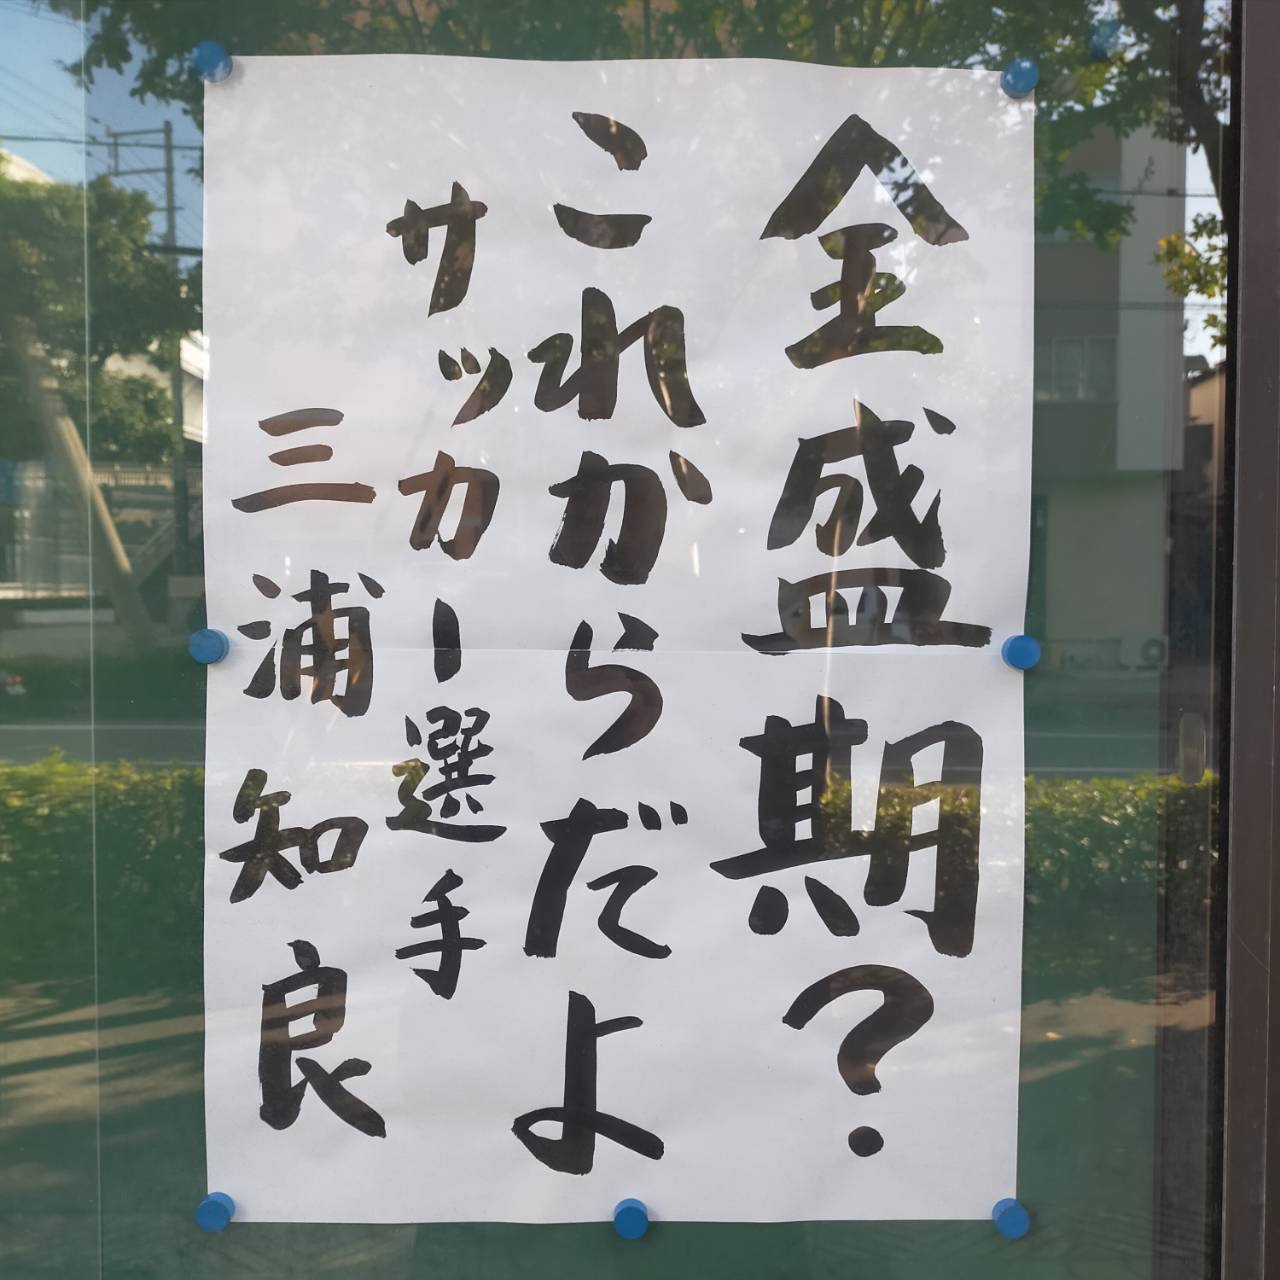 全盛期？
これからだよ
サッカー選手
三浦知良